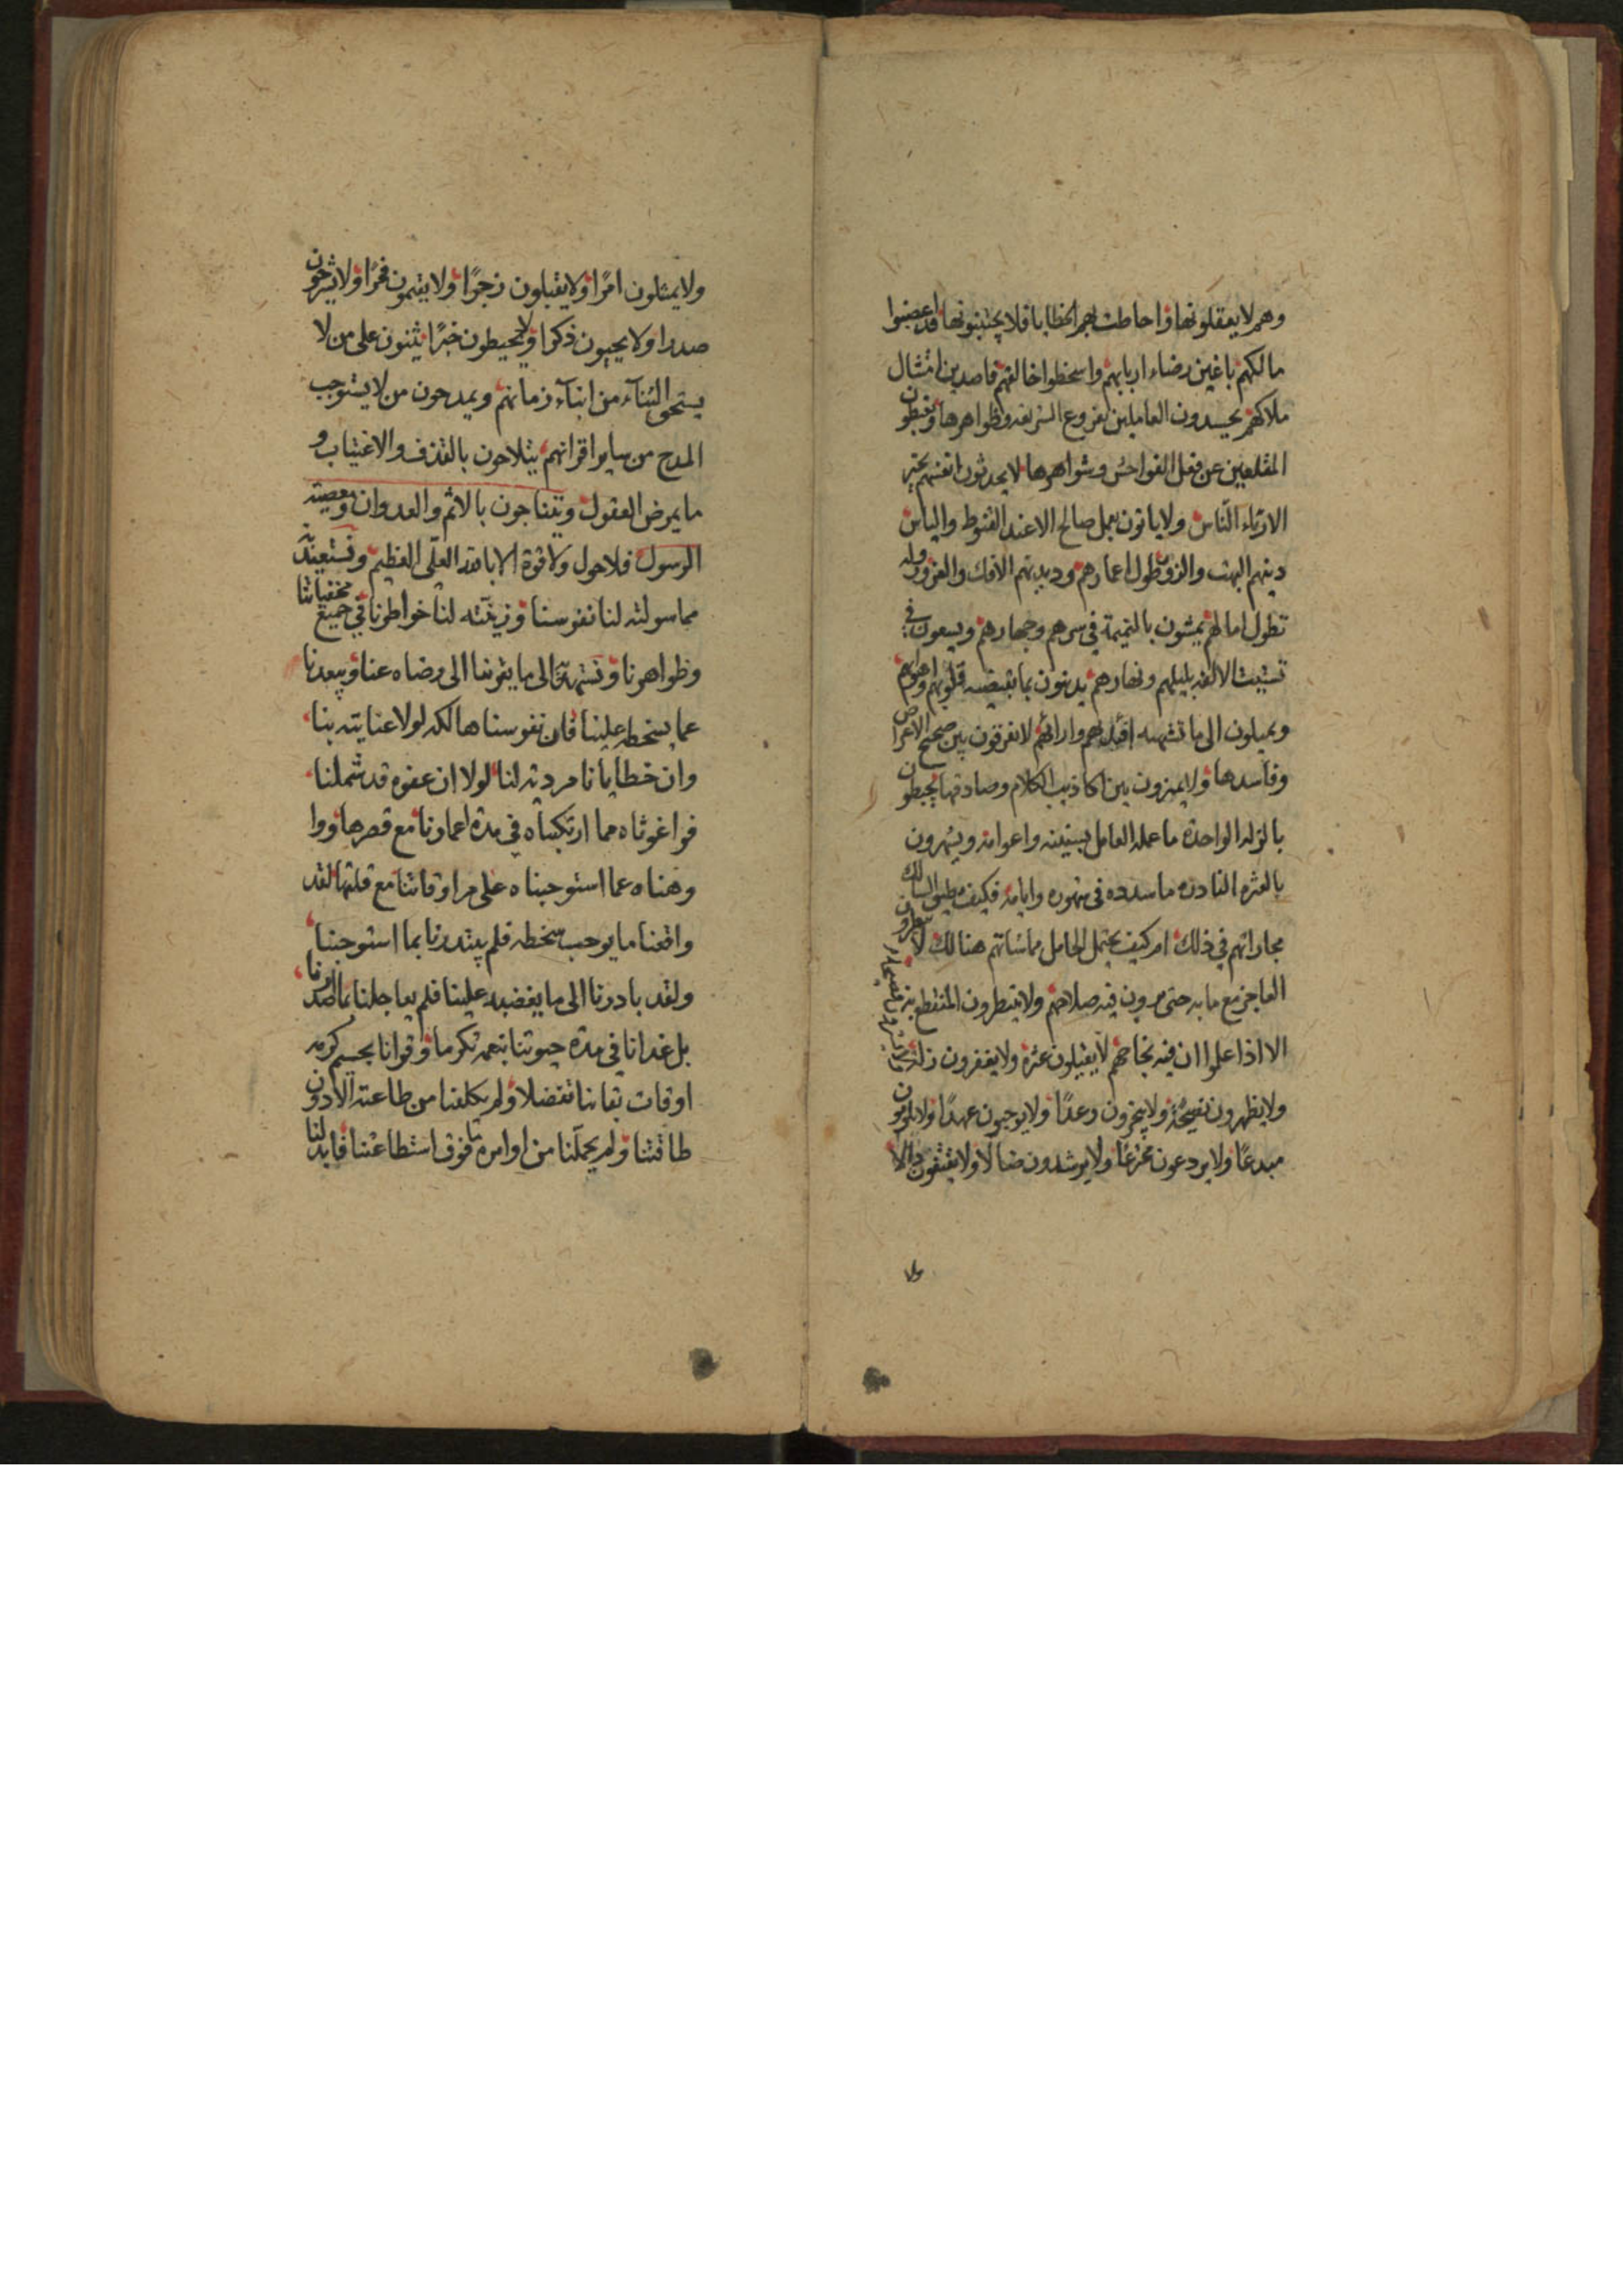 وهم لا يعقلونها واحاطت بهم الخطايا فلا يجتنبونها قد اغضبوا
مالكهم باغين رضاء اربابهم واسخطوا خالقهم قاصدين امتثال
ملاكهم يحسدون العاملين بفروع الشريعه وظواهرها ويغبطون
المقلعين عن فعل الفواحش وشواهرها لا يحدثون انفسهم بخير
الا رئاء الناس ولا ياتون بعمل صالح الا عند القنوط والياس
دينهم البهت والزور طول اعمارهم وديدنهم الافك والغرور وله
تطول امالهم يمشون بالنميمة في سرهم وجهارهم ويسعون في
تشتيت الالفه بليلهم ونهارهم يدينون بما تقتضيه قلوبهم واهواهم
ويميلون الى ما تشتهيه افئدتهم وارائهم لا يفرقون بين صحيح الاعراض
وفاسدها ولا يميزون بين اكاذيب الكلام وصادقها يحبطون
بالزله الواحدة ما عمله العامل بسنينه واعوامه ويشهرون
بالعثره النادره ما سدده في شهوره وايامه فكيف يطيق السالك
مجاراتهم في ذلك ام كيف يحتمل الحامل مماشاتهم هنالك لا ينظرون
العاجز مع ما به حتى يرون فيه صلاحهم ولا ينتظرون المنقطع
الا اذا علموا ان فيه نجاحهم لا يقيلون عثرة ولا يغفرون زلة
ولا يظهرون نصيحة ولا ينجزون وعدًا ولا يوجبون عهدًا ولا يلومون
مبدعًا ولا يردعون مخترعًا ولا يرشدون ضالًا ولا يثقفون
ولا
ولا يمثلون امرًا ولا يقبلون زجرًا ولا يفهمون فخرًا ولا يشرحون
صدرا ولا يحيون ذكرا ولا يحيطون خبرًا يثنون على من لا
يستحق الثناء من ابناء زمانهم ويمدحون من لا يستوجب
المدح من ساير اقرانهم يتلاحون بالقذف والاغتياب و
ما يمرض العقول ويتناجون بالاثم والعدوان ومعصيت
الرسول فلا حول ولا قوة الا بالله العلي العظيم ونستعيذ
مما سولته لنا نفوسنا وزينته لنا خواطرنا في جميع مخفياتنا
وظواهرنا ونستهديه الى ما يقربنا الى رضاه عنا ويبعدنا
عما يسخطه علينا فان نفوسنا هالكه لولا عنايته بنا
وان خطايانا مرديه لنا لولا ان عفوه قد شملنا
فواغوثاه مما ارتكبناه في مدة اعمارنا مع قصرها ووا
وهناه عما استوجبناه على مر اوقاتنا مع قلتها لقد
واقعنا ما يوجب سخطه فلم يبتدرنا بما استوجبنا
ولقد بادرنا الى ما يغضبه علينا فلم يعاجلنا بما اصدرنا
بل غدانا في مدة حيوتنا بنعمه تكرما وقوانا بجسيم كرمه
اوقات بقاءنا تفضلا ولم يكلفنا من طاعته الا دون
طاقتنا ولم يحملنا من اوامره ما فوق استطاعتنا فابدلنا